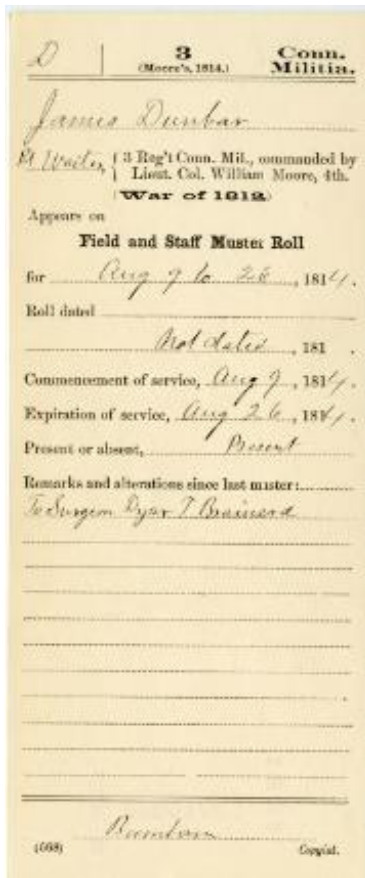 D 3 Conn.
(Moore's, 1814.) Militia.
James Dunbar
Pt Waiter, { 3 Reg't Conn. Mil., commanded by
Lieut. Col. William Moore, 4th.
(War of 1812.)
Appears on
Field and Staff Muster Roll
for Aug 9 to 26, 1814.
Roll dated
Not dated, 181 .
Commencement of service, Aug 9, 1814.
Expiration of service, Aug 26, 1814.
Present or absent, Present
Remarks and alterations since last muster:
To Surgeon Dyar T Brainerd
(668) Copyist.